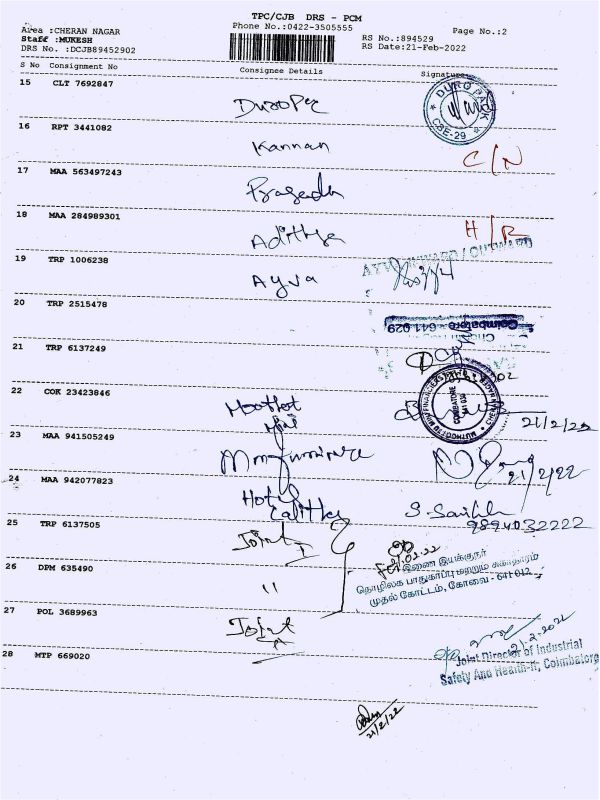 TPC/CJB DRS - PCM
Area :CHERAN NAGAR
Phone No.:0422-3505555
Page No.:2
Staff :MUKESH
RS No.:894529
DRS No. :DCJB89452902
RS Date:21-Feb-2022
S No Consignment No Consignee Details Signature
15 CLT 7692847
DURO PACK
CSE-29
16 RPT 3441082
Kannan
C/N
17 MAA 563497243
Prasadh
18 MAA 284989301
Adithya
H/R
19 TRP 1006238
Ayva
INWARD / OUTWARD
20 TRP 2515478
Coimbatore - 641 029
21 TRP 6137249
22 COK 23423846
COIMBATORE
641 030
21/2/22
23 MAA 941505249
21/2/22
24 MAA 942077823
Hotel
Lalitha
9894032222
25 TRP 6137505
Joint I
இணை இயக்குநர்
26 DPM 635490
"
தொழிலக பாதுகாப்பு மற்றும் சுகாதாரம்
முதல் கோட்டம், கோவை - 641 012
27 POL 3689963
Joint
28 MTP 669020
Joint Director of Industrial
Safety And Health-II, Coimbatore
21/2/22